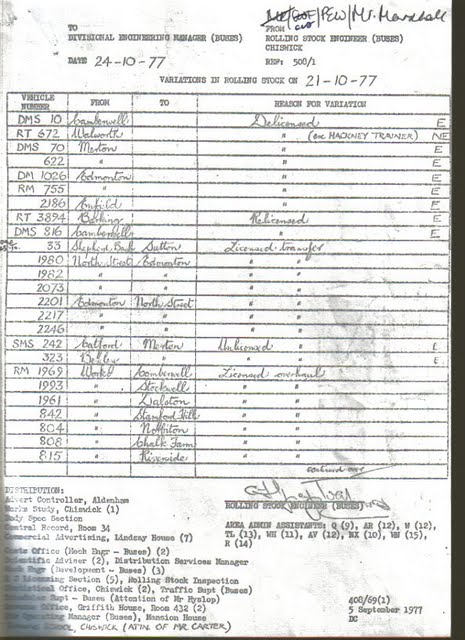 PEW/Mr. Marshall
TO
FROM
DIVISIONAL ENGINEERING MANAGER (BUSES)
ROLLING STOCK ENGINEER (BUSES)
CHISWICK
DATE 24-10-77
REF: 500/1
VARIATIONS IN ROLLING STOCK ON 21-10-77
VEHICLE NUMBER FROM TO REASON FOR VARIATION
DMS 10 Camberwell Delicensed E
RT 672 Walworth " (ex HACKNEY TRAINER) NE
DMS 70 Merton " E
622 " " E
DM 1026 Edmonton " E
RM 755 " " E
2186 Enfield " E
RT 3894 Barking Relicensed E
DMS 816 Camberwell " E
33 Shepherds Bush Sutton Licensed transfer
1980 North Street Edmonton " "
1982 " " " "
2073 " " " "
2201 Edmonton North Street " "
2217 " " " "
2246 " " " "
SMS 242 Catford Merton Unlicensed " E
323 Bexley " " " E
RM 1969 Works Camberwell Licensed overhaul
1993 " Stockwell " "
1961 " Dalston " "
842 " Stamford Hill " "
804 " Norbiton " "
808 " Chalk Farm " "
815 " Riverside " "
continued over
DISTRIBUTION:
Advert Controller, Aldenham
Works Study, Chiswick (1)
Body Spec Section
Central Record, Room 34
Commercial Advertising, Lindsay House (7)
Costs Office (Mech Engr - Buses) (2)
Scientific Adviser (2), Distribution Services Manager
Engr (Development - Buses) (3)
Licensing Section (5), Rolling Stock Inspection
Office, Chiswick (2), Traffic Supt (Buses)
Supt - Buses (Attention of Mr Hyslop)
Office, Griffith House, Room 432 (2)
Operating Manager (Buses), Mansion House
SCHOOL, CHISWICK (ATTN. OF MR CARTER)
ROLLING STOCK ENGINEER (BUSES)
AREA ADMIN ASSISTANTS: Q (9), AR (12), W (12),
TL (13), WH (11), AV (12), NX (10), WN (15),
R (14)
408/69(1)
5 September 1977
DC